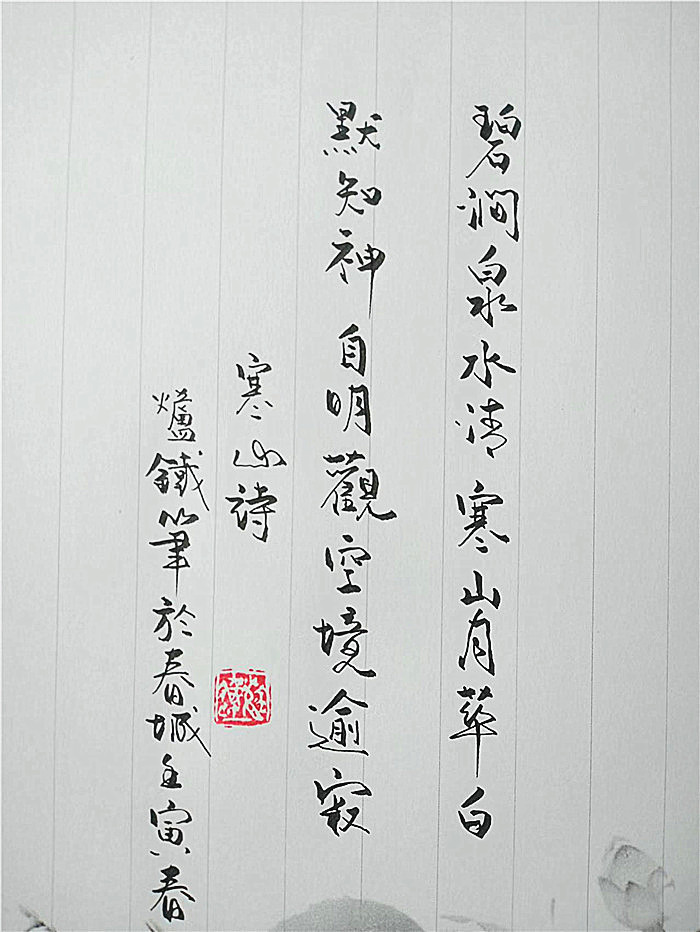 碧澗泉水清寒山月華白
默知神自明觀空境逾寂
寒山詩
爐鐵筆於春城壬寅春